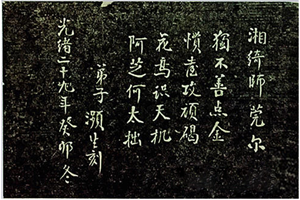 湘绮师莞尔
獨不善点金
愤意攻顽碣
花鸟识天机
阿芝何太拙
弟子 瀕生刻
光绪二十九年癸卯冬